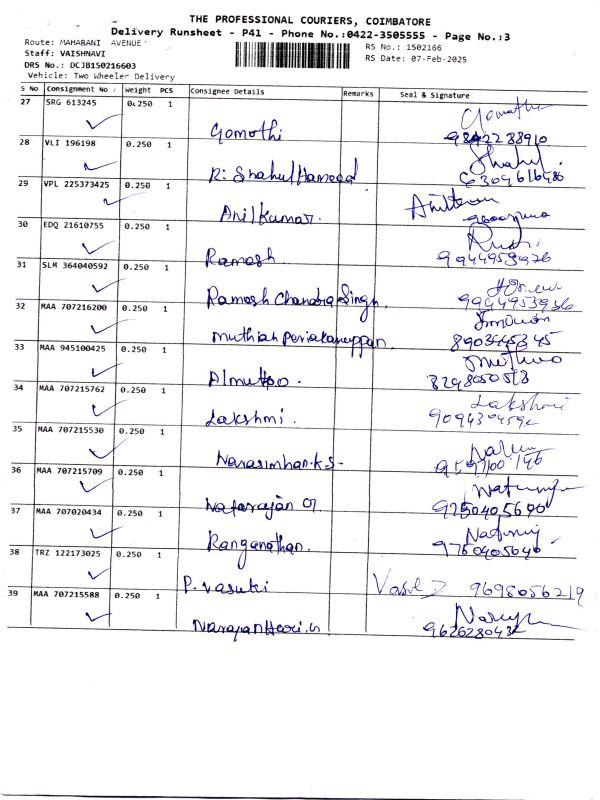 THE PROFESSIONAL COURIERS, COIMBATORE
Delivery Runsheet - P41 - Phone No.:0422-3505555 - Page No.:3
Route: MAHARANI AVENUE
RS No.: 1502166
Staff: VAISHNAVI
RS Date: 07-Feb-2025
DRS No.: DCJB150216603
Vehicle: Two Wheeler Delivery
S No Consignment No Weight PCS Consignee Details Remarks Seal & Signature
27 SRG 613245 0.250 1
Gomathi 9842288910
28 VLI 196198 0.250 1
R. Shahul Hameed
29 VPL 225373425 0.250 1
Anilkumar.
30 EDQ 21610755 0.250 1
Ramesh. 9944953976
31 SLM 364040592 0.250 1
Ramesh Chandra Singh. 9944953936
32 MAA 707216200 0.250 1
Muthiah Periakaruppan. 8903445345
33 MAA 945100425 0.250 1
34 MAA 707215762 0.250 1
Lakshmi
Lakshmi.
35 MAA 707215530 0.250 1
Narasimhan.K.S-
36 MAA 707215709 0.250 1
Natarajan
37 MAA 707020434 0.250 1
Ranganathan.
38 TRZ 122173025 0.250 1
P. Vasuki 9698056219
39 MAA 707215588 0.250 1
9626280432